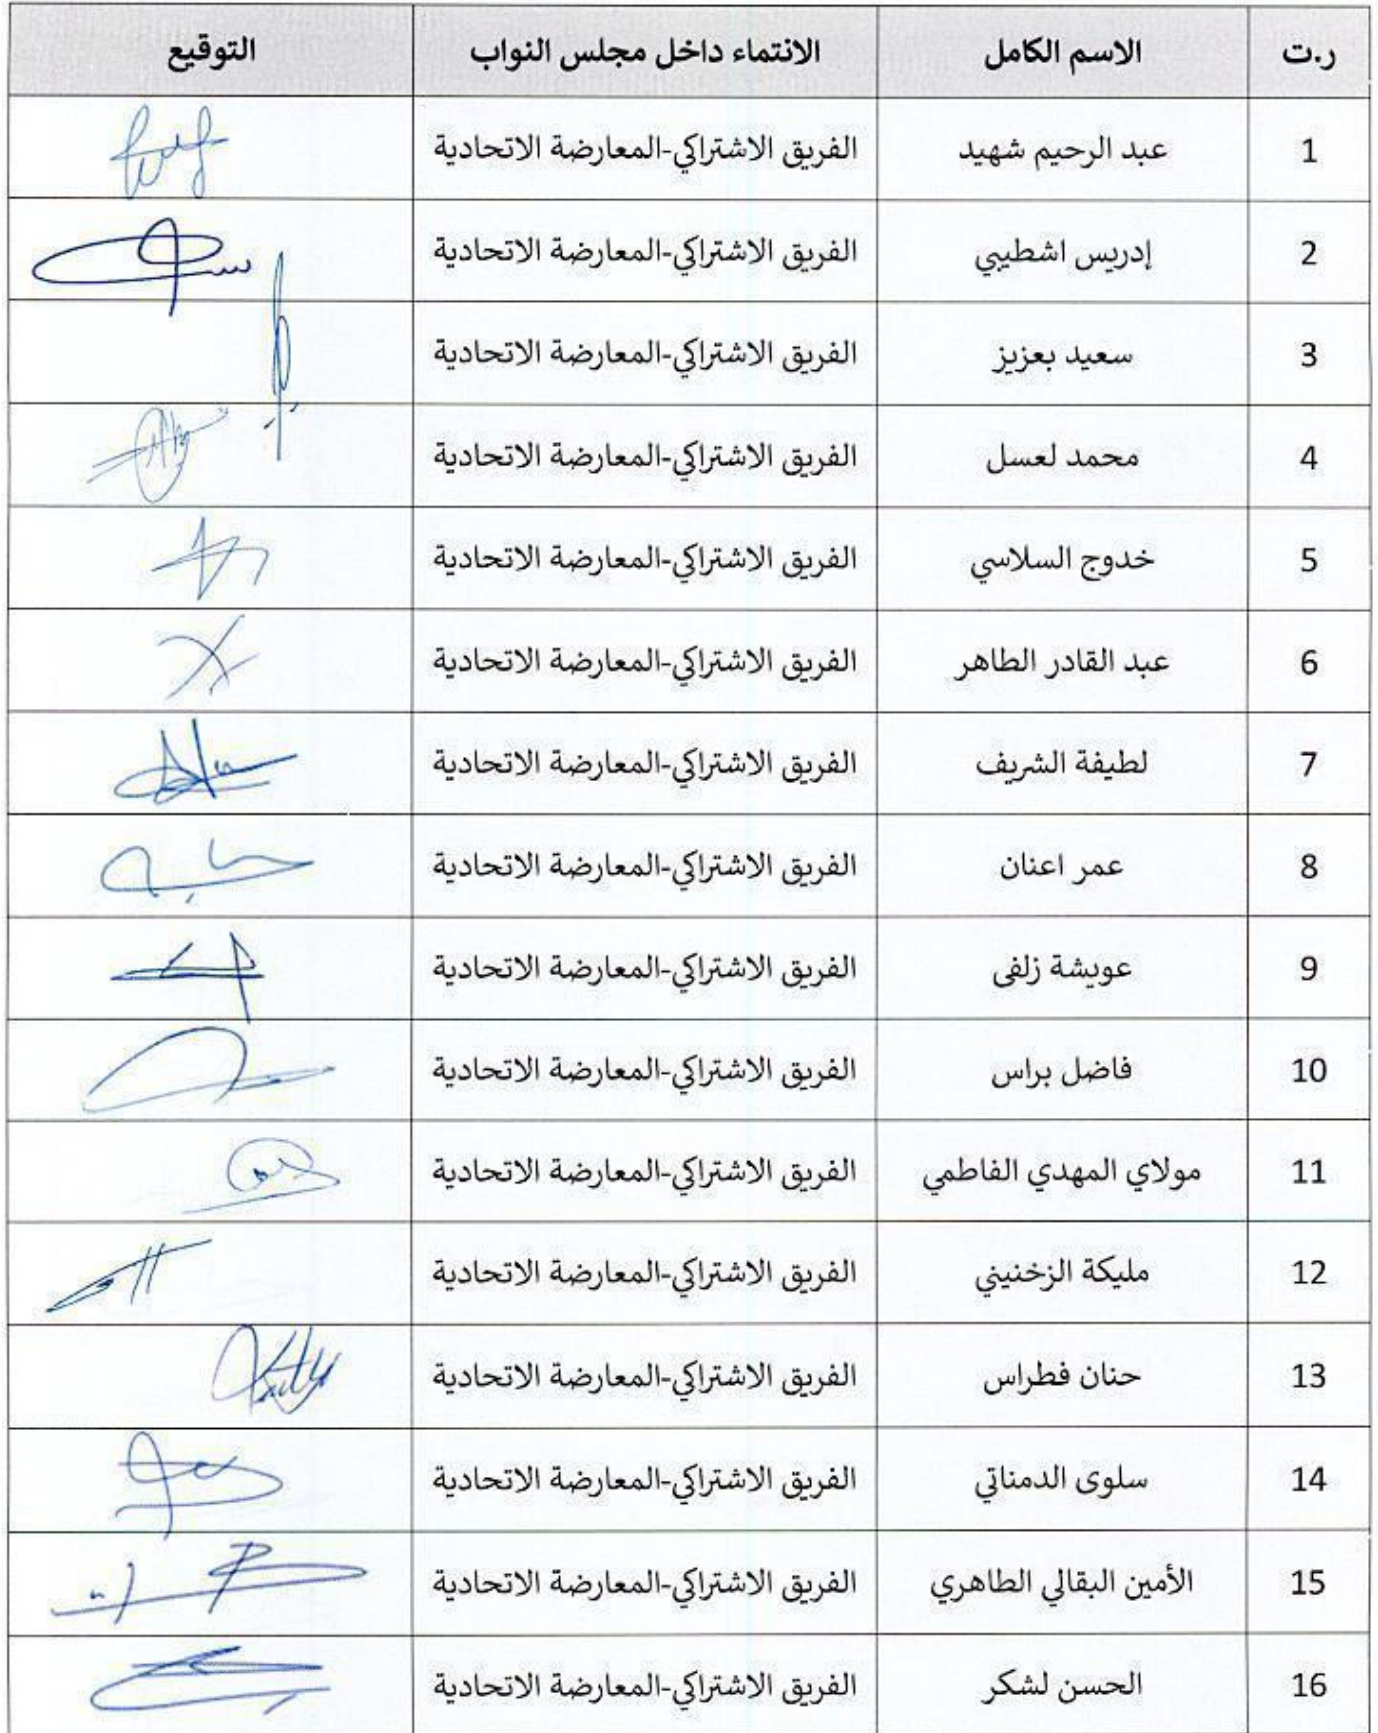 ر.ت الاسم الكامل الانتماء داخل مجلس النواب التوقيع
1 عبد الرحيم شهيد الفريق الاشتراكي-المعارضة الاتحادية
2 إدريس اشطيبي الفريق الاشتراكي-المعارضة الاتحادية
3 سعيد بعزيز الفريق الاشتراكي-المعارضة الاتحادية
4 محمد لعسل الفريق الاشتراكي-المعارضة الاتحادية
5 خدوج السلاسي الفريق الاشتراكي-المعارضة الاتحادية
6 عبد القادر الطاهر الفريق الاشتراكي-المعارضة الاتحادية
7 لطيفة الشريف الفريق الاشتراكي-المعارضة الاتحادية
8 عمر اعنان الفريق الاشتراكي-المعارضة الاتحادية
9 عويشة زلفى الفريق الاشتراكي-المعارضة الاتحادية
10 فاضل براس الفريق الاشتراكي-المعارضة الاتحادية
11 مولاي المهدي الفاطمي الفريق الاشتراكي-المعارضة الاتحادية
12 مليكة الزخنيني الفريق الاشتراكي-المعارضة الاتحادية
13 حنان فطراس الفريق الاشتراكي-المعارضة الاتحادية
14 سلوى الدمناتي الفريق الاشتراكي-المعارضة الاتحادية
15 الأمين البقالي الطاهري الفريق الاشتراكي-المعارضة الاتحادية
16 الحسن لشكر الفريق الاشتراكي-المعارضة الاتحادية